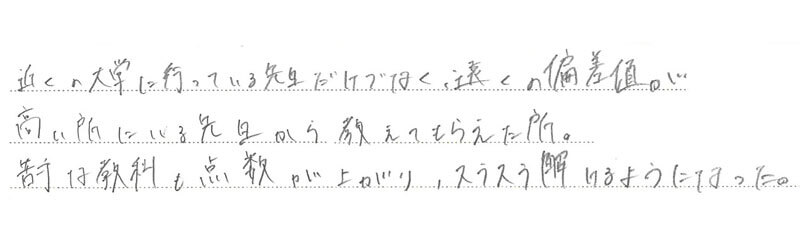 近くの大学に行っている先生だけでなく、遠くの偏差値が
高い所にいる先生から教えてもらえた所。
苦手な教科も点数が上がり、スラスラ解けるようになった。